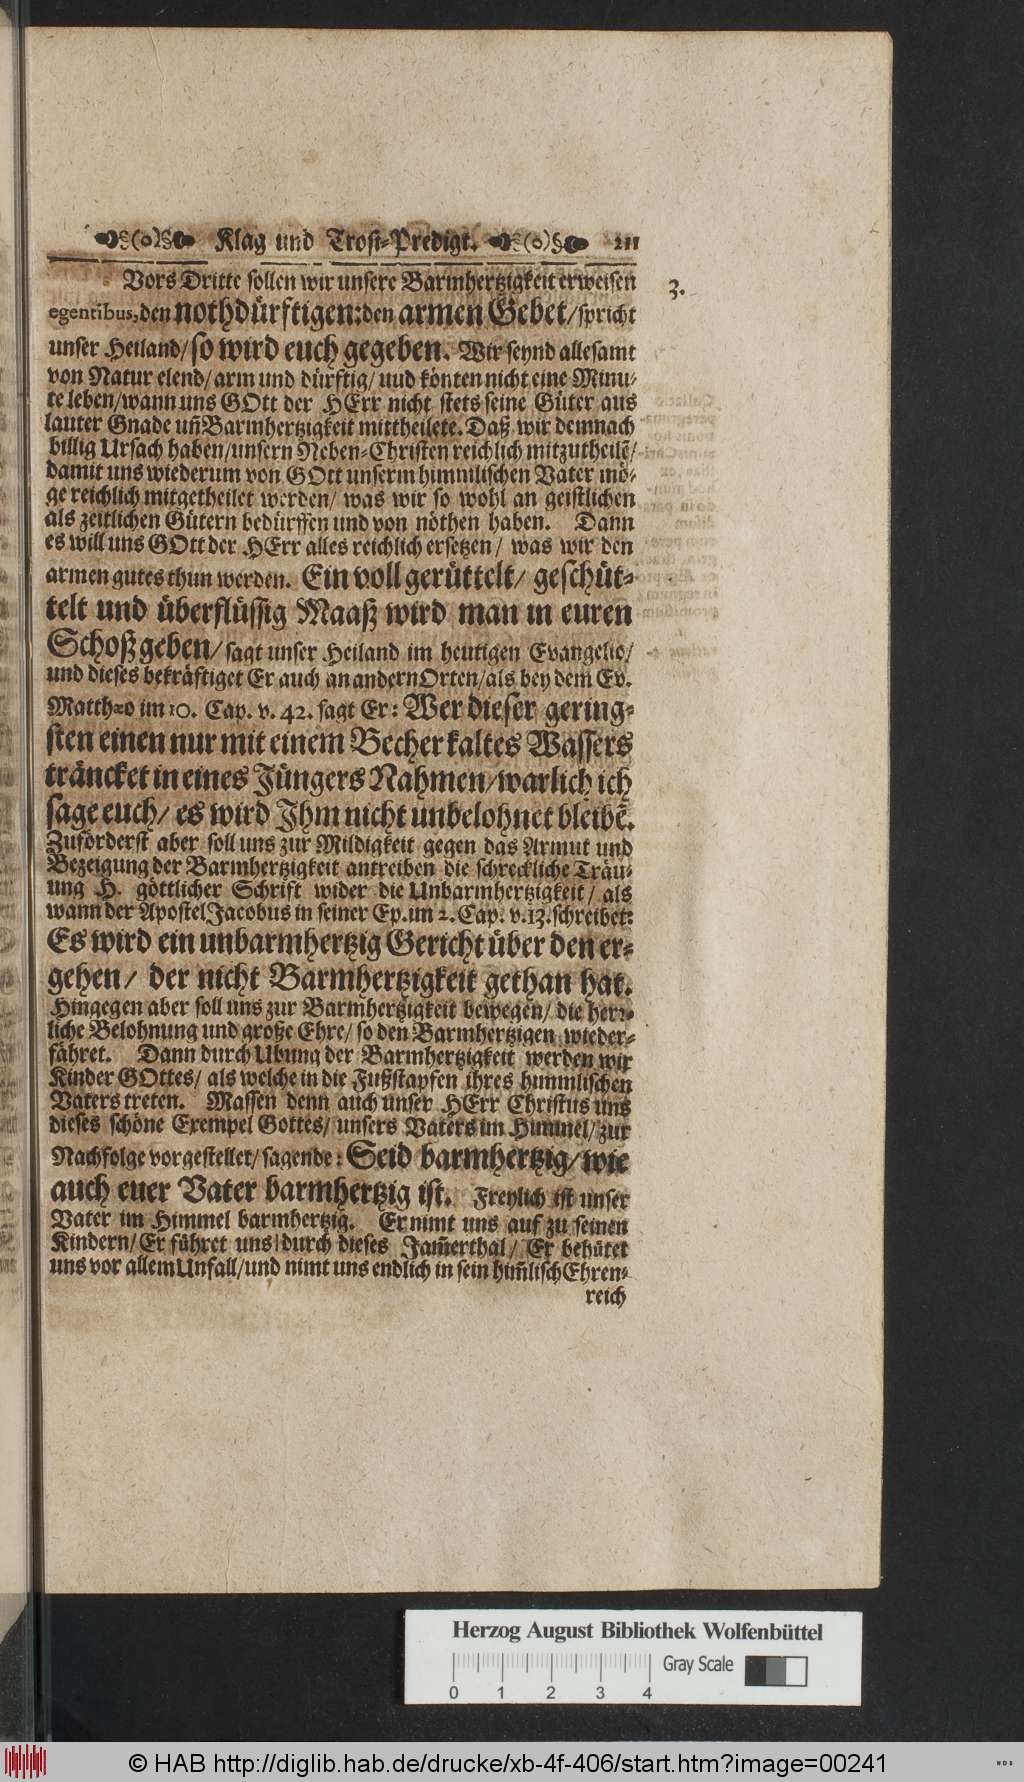 Klag und Trost-Predigt. 211
Vors Dritte sollen wir unsere Barmhertzigkeit erweisen
3.
egentibus, den nothdürftigen: den armen Gebet/ spricht
unser Heiland/ so wird euch gegeben. Wir seynd allesamt
von Natur elend/ arm und dürftig/ uud könten nicht eine Minu-
te leben/ wann uns GOtt der HErr nicht stets seine Güter aus
lauter Gnade uñ Barmhertzigkeit mittheilete. Daß wir demnach
billig Ursach haben/ unsern Neben-Christen reichlich mitzutheilẽ/
damit uns wiederum von GOtt unserm himmlischen Vater mö-
ge reichlich mitgetheilet werden/ was wir so wohl an geistlichen
als zeitlichen Gütern bedürffen und von nöthen haben. Dann
es will uns GOtt der HErr alles reichlich ersetzen/ was wir den
armen gutes thun werden. Ein voll gerüttelt/ geschüt-
telt und überflüssig Maaß wird man in euren
Schoß geben/ sagt unser Heiland im heutigen Evangelio/
und dieses bekräftiget Er auch an andern Orten/ als bey dem Ev.
Matthæo im 10. Cap. v. 42. sagt Er: Wer dieser gering-
sten einen nur mit einem Becher kaltes Wassers
träncket in eines Jüngers Nahmen/ warlich ich
sage euch/ es wird Ihm nicht unbelohnet bleibẽ.
Zuförderst aber soll uns zur Mildigkeit gegen das Armut und
Bezeigung der Barmhertzigkeit antreiben die schreckliche Träu-
ung H. göttlicher Schrift wider die Unbarmhertzigkeit/ als
wann der Apostel Jacobus in seiner Ep. im 2. Cap. v. 13. schreibet:
Es wird ein unbarmhertzig Gericht über den er-
gehen/ der nicht Barmhertzigkeit gethan hat.
Hingegen aber soll uns zur Barmhertzigkeit bewegen/ die herr-
liche Belohnung und große Ehre/ so den Barmhertzigen wieder-
fähret. Dann durch Ubung der Barmhertzigkeit werden wir
Kinder GOttes/ als welche in die Fußstapfen ihres himmlischen
Vaters treten. Massen denn auch unser HErr Christus uns
dieses schöne Exempel Gottes/ unsers Vaters im Himmel/ zur
Nachfolge vorgestellet/ sagende: Seid barmhertzig/ wie
auch euer Vater barmhertzig ist. Freylich ist unser
Vater im Himmel barmhertzig. Er nimt uns auf zu seinen
Kindern/ Er führet uns durch dieses Jam̃erthal/ Er behütet
uns vor allem Unfall/ und nimt uns endlich in sein him̃lisch Ehren-
reich
Herzog August Bibliothek Wolfenbüttel
Gray Scale
0 1 2 3 4
© HAB http://diglib.hab.de/drucke/xb-4f-406/start.htm?image=00241